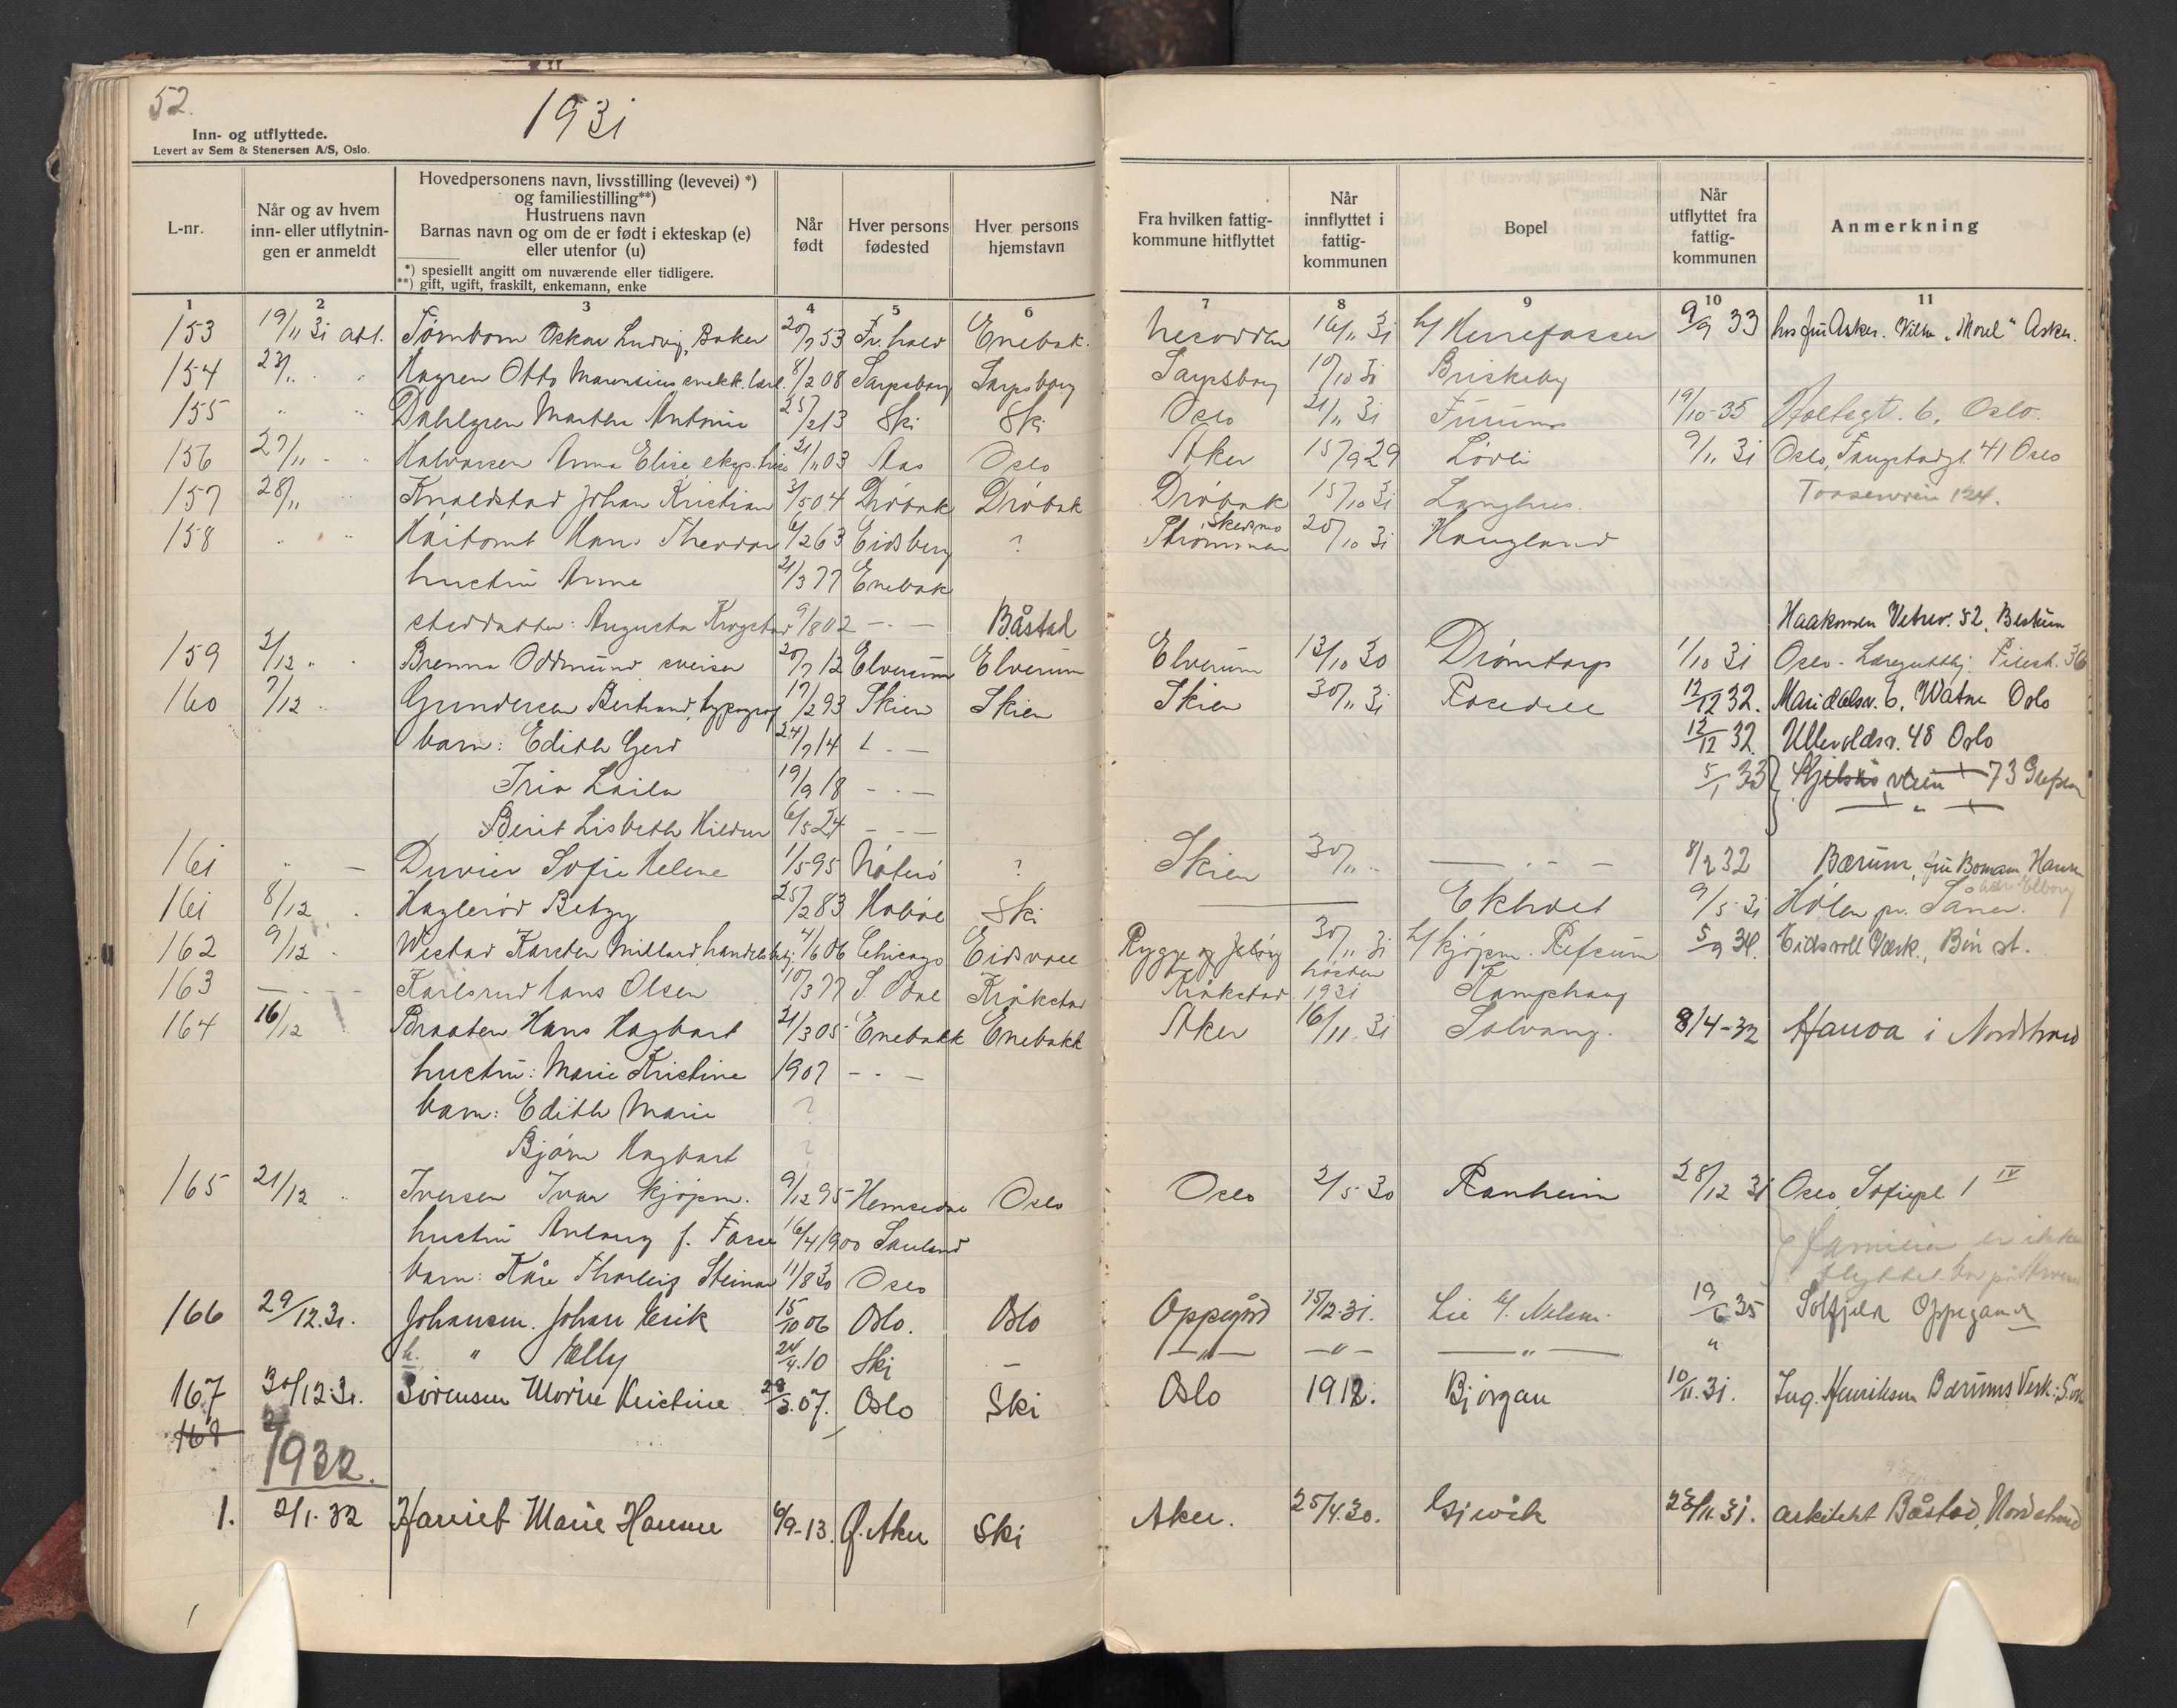 52.
1931
Inn- og utflyttede.
Levert av Sem & Stenersen A/S, Oslo.
L-nr.
Når og av hvem inn- eller utflytnin-gen er anmeldt
Hovedpersonens navn, livsstilling (levevei) *)
og familiestilling**)
Hustruens navn
Barnas navn og om de er født i ekteskap (e)
eller utenfor (u)
*) spesiellt angitt om nuværende eller tidligere.
**) gift, ugift, fraskilt, enkemann, enke
Når født
Hver persons fødested
Hver persons hjemstavn
Fra hvilken fattig-kommune hitflyttet
Når innflyttet i fattig-kommunen
Bopel
Når utflyttet fra fattig-kommunen
Anmerkning
1 2 3 4 5 6 7 8 9 10 11
153 19/11 31 att. Tørnbom Oskar Ludvig, Baker 20/7 53 Fr.hald Enebak. Nesodden 16/11 31 b/ Herrefossen 9/9 33 hos fru Asker. Villa "Morel" Asker.
154 23/11 Hagren Otto Marensius snekk. lærl. 8/2 08 Sarpsborg Sarpsborg Sarpsborg 10/10 31 Briskeby
155 " " Dahlgren Martha Antonie 25/2 13 Ski Ski Oslo 21/11 31 Furumo 19/10-35 Holtegt. 6, Oslo.
156 27/11 Halvorsen Anna Elise eksp. 21/11 03 Aas Oslo Aker 15/9 29 Lövli 9/11 31 Oslo, 41 Oslo
157 28/11 Knoldstad Johan Kristian 3/5 04 Dröbak Dröbak Dröbak 15/10 31 Langhus. 124.
158 " " Håitomt Hans Theodor 6/2 63 Eidsberg ? Skedsmo Thrömsnæs 20/10 31 Haugland
hustru Anna 21/3 77 Enebak
steddatter: Augusta Krogstad 9/8 02 - . - Båstad
Haakonsen Vetrev. 52, Bestum
159 2/12 Brenna Oddmund sveiser 20/7 12 Elverum Elverum Elverum 13/10 30 Drömtorp 1/10 31 Oslo - Pilest. 36
160 7/12 Gundersen Bertrand, typograf 17/2 93 Skien Skien Skien 30/11 31 Rosedell 12/12 32. Maridalsv. 6, Watne Oslo
barn: Edith Gerd 24/7 14 - . - 12/12 32. Ullevoldsv. 48 Oslo
Iris Laila 19/9 18 - . - 5/1 33 Kjelsås veien 73 Grefsen
Berit Lisbeth Hildur 6/5 24 - . - - " -
161 " - Duvier Sofie Helene 1/5 95 Nøterö ? Skien 30/11 - . . - 8/2 32 Bærum, fru Boman Hansen
161 8/12 Haglerød Betzy 25/2 83 Hobøl Ski ——— Ekholt 9/5 31 Hölen pr. Soner.
162 9/12 Westad Karsten Millard handelsbetj. 4/6 06 Chicago Eidsvoll Rygge og Jelöy 30/11 31 b/ kjøpm. Refsum 5/9 34. Eidsvoll Værk, Bön st.
163 - . - Karlsrud Hans Olsen 10/3 77 S. Odal Kråkstad Kråkstad høsten 1931 Kamphaug
164 16/12 Braaten Hans Hagbart 21/3 05 Enebakk Enebakk Aker 16/11 31 Solvang. 8/4-32 Hauva i Nordstrand
hustru: Marie Kristine 1907 - . -
barn: Edith Marie ?
Bjørn Hagbart ?
165 21/12 " Iversen Ivar kjøpm. 9/12 95 Hemsedal Oslo Oslo 2/5 30 Ranheim 28/12 31 Oslo, Sofiepl. 1 IV
hustru Anlaug f. Fosse 16/4 1900 Sauland familien er ikke
barn: Kåre Thorleif Steinar 11/8 30 Oslo flyttet bor på
166 29/12.31. Johansen. Johan Erik 15/10 06 Oslo. Oslo Oppegård 15/12-31. Lie b/. Nilsen. 19/6 35 Solfjeld Oppegaard
h. " Elly 24/4.10 Ski - - " - - " - - " - "
167 30/12.31. Sörensen Marie Kristine 28/3.07. Oslo Ski Oslo 1912. Bjørgan 10/11.31. Ing. Henriksen Bærums Verk.
168
1932.
1. 2/1-32 Harriet Marie Hansen 6/9-13. Ø. Aker Ski Aker. 25/4.30. Gjevik 28/11.31. arkitekt Båstad, Nordstrand